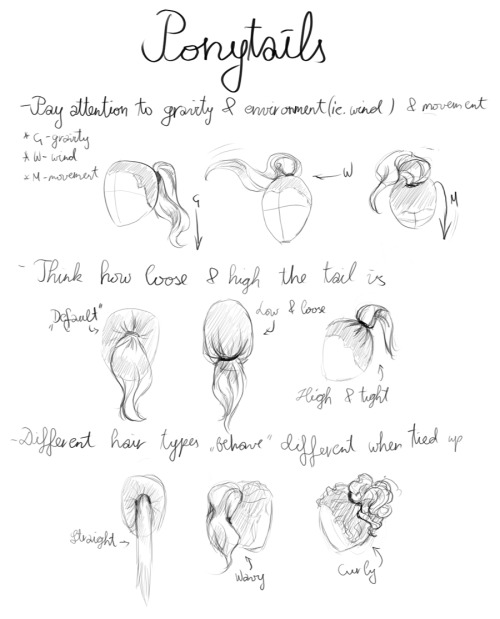 Ponytails
- Pay attention to gravity & environment (ie. wind) & movement
* G - gravity
* W - wind
* M - movement
G
W
M
- Think how loose & high the tail is
„Default"
Low & loose
High & tight
- Different hair types „behave" different when tied up
Straight
Wavy
Curly